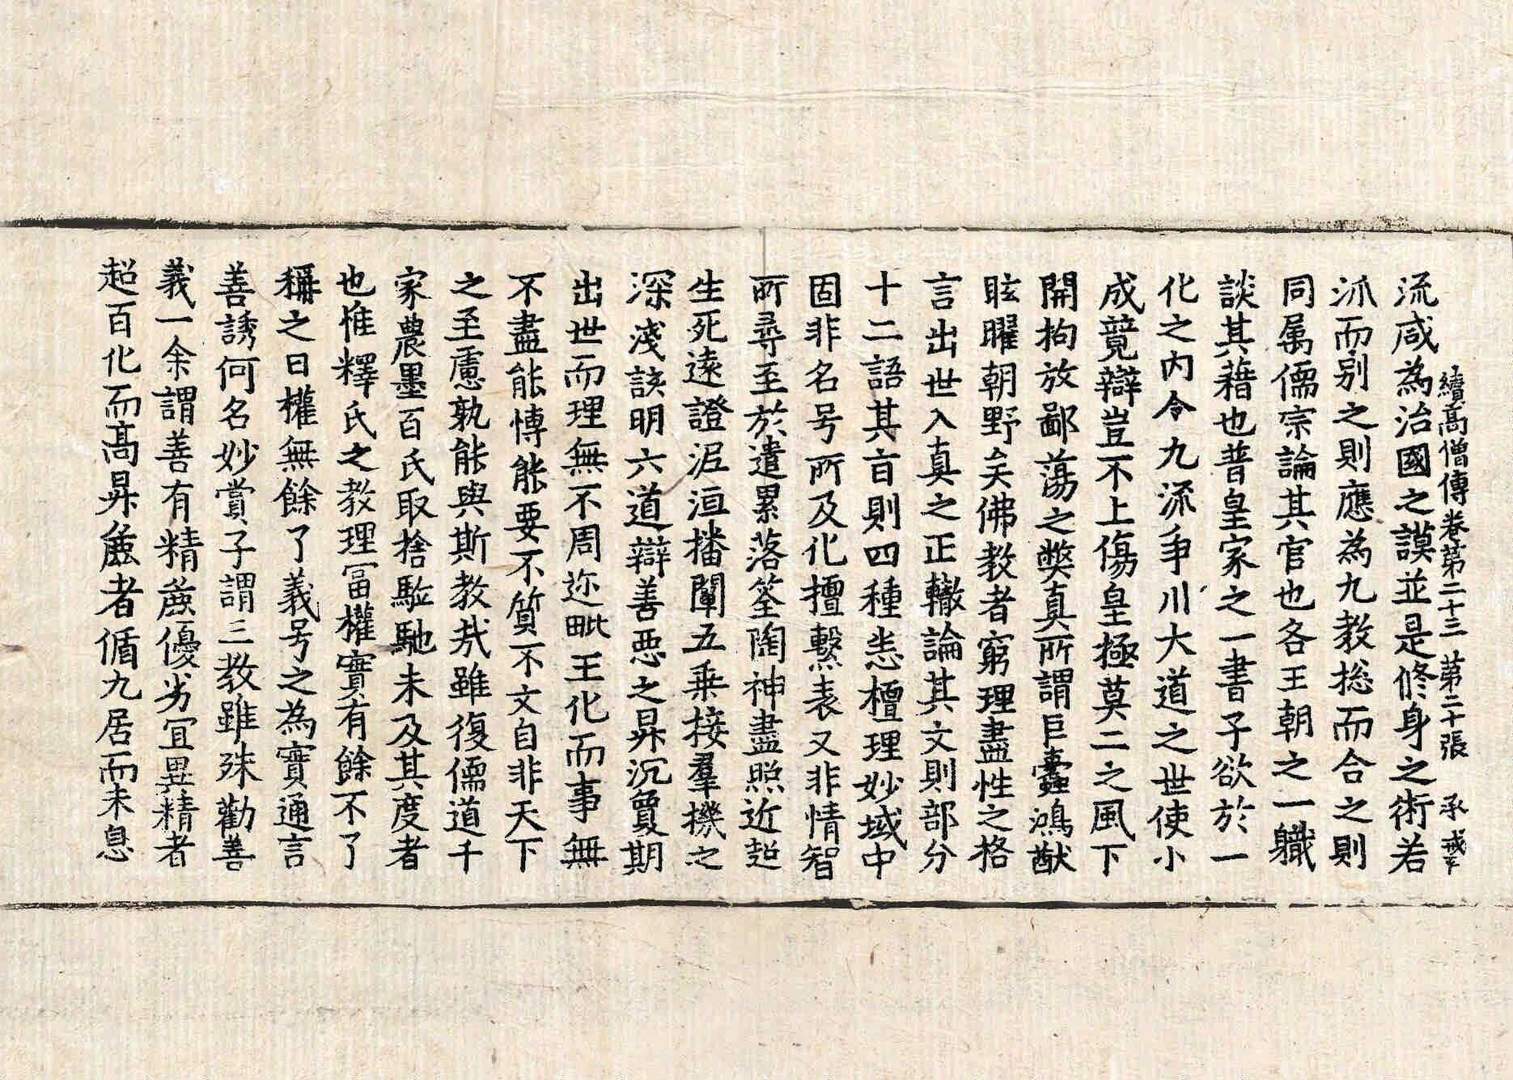 續高僧傳卷第二十三 第二十張 承戒
流咸為治國之謨並是修身之術若
派而別之則應為九教捴而合之則
同属儒宗論其官也各王朝之一職
談其藉也普皇家之一書子欲於一
化之内令九流爭川大道之世使小
成競辯豈不上傷皇極莫二之風下
開拘放鄙蕩之獘真所謂巨蠹鴻猷
眩曜朝野矣佛教者窮理盡性之格
言出世入真之正轍論其文則部分
十二語其㫖則四種悉檀理妙域中
固非名号所及化擅繫表又非情智
所尋至於遣累落筌陶神盡照近超
生死逺證泥洹播闡五乗接羣機之
深淺該明六道辯善悪之昇沉敻期
出世而理無不周迩毗王化而事無
不盡能博能要不質不文自非天下
之至慮孰能與斯教㢤雖復儒道千
家農墨百氏取捨駈馳未及其度者
也惟釋氏之教理冨權實有餘不了
稱之曰權無餘了義号之為實通言
善誘何名妙賞子謂三教雖殊勸善
義一余謂善有精麁優劣冝異精者
超百化而髙昇麁者循九居而未息